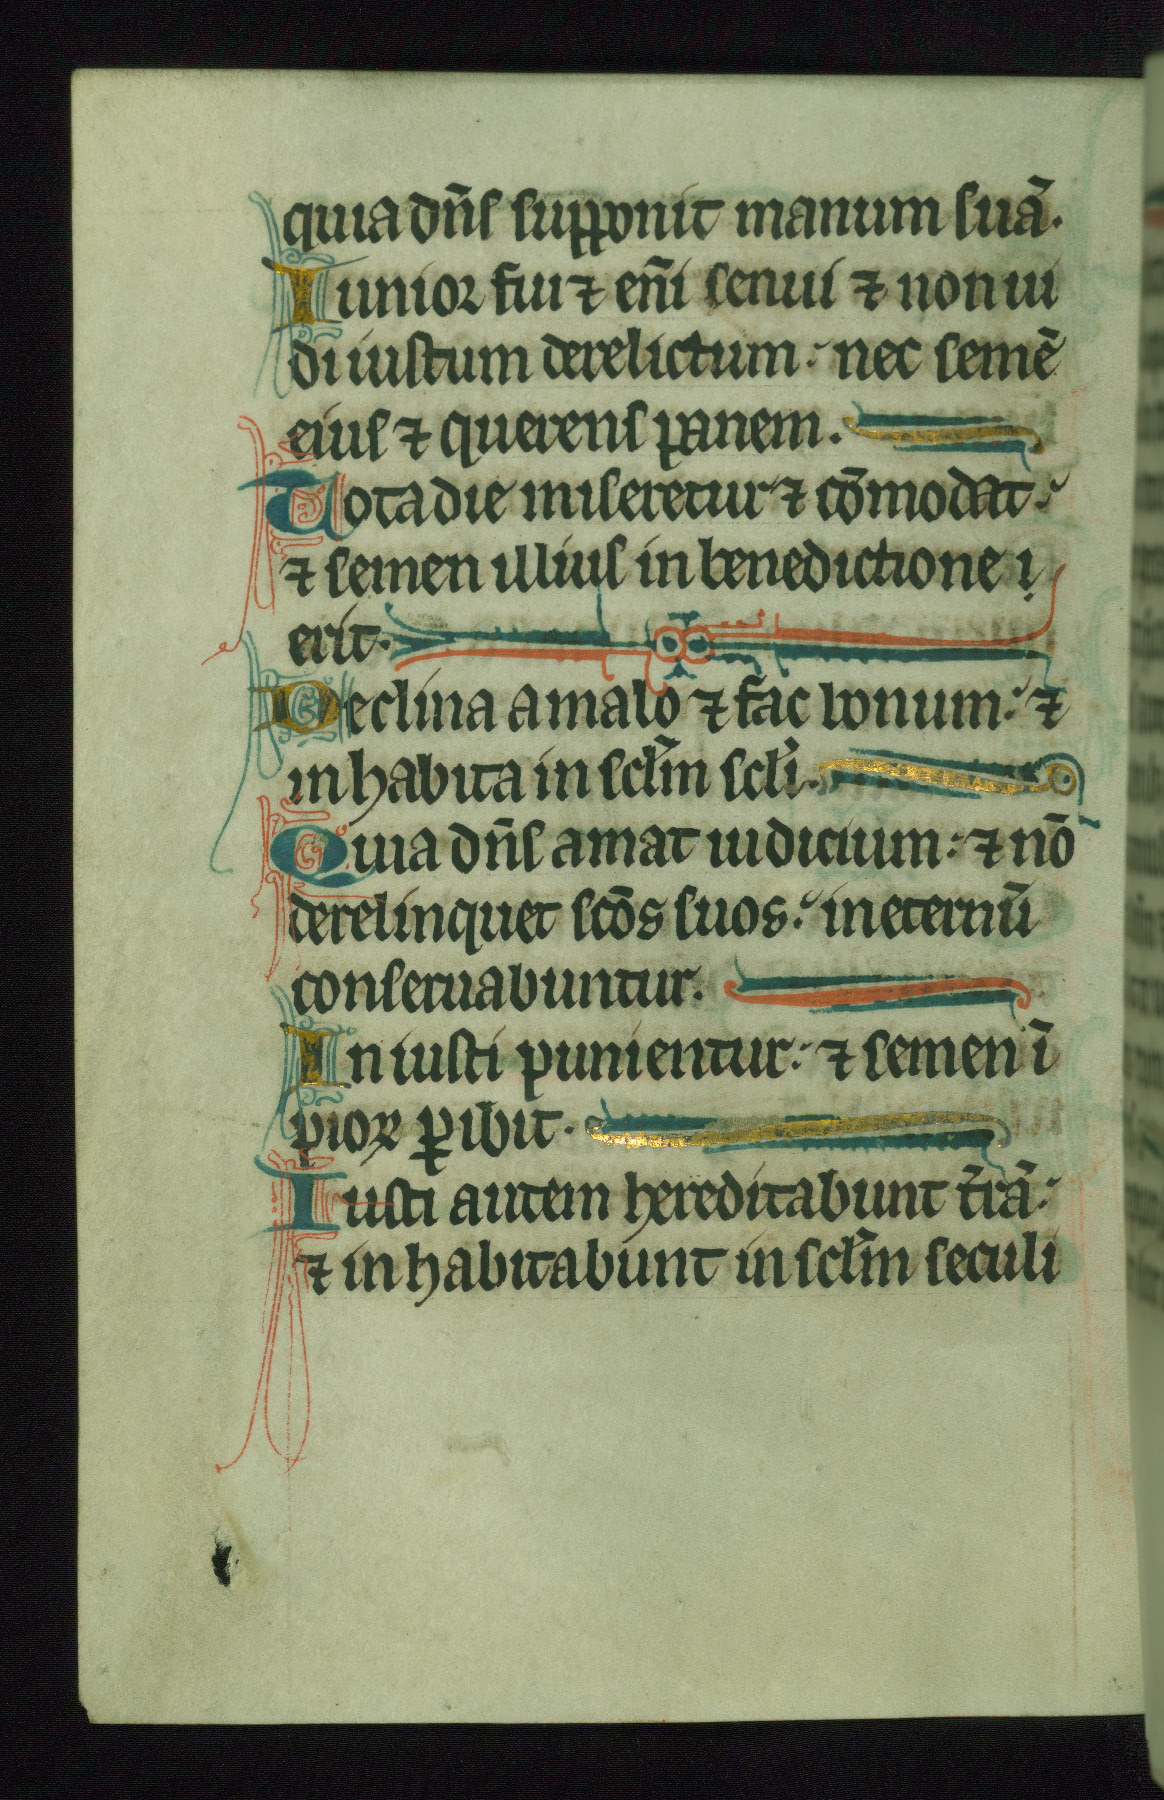 quia dn̄s supponit manum suā.
Iunior fui ⁊ em̄i senui ⁊ non ui
di iustum derelictum: nec semē
eius ⁊ querens panem.
Tota die miseretur ⁊ cōmodat:
⁊ semen illius in benedictione i
erit.
Declina a malo ⁊ fac bonum: ⁊
inhabita in scl̄m scl̄i.
Quia dn̄s amat iudicium: ⁊ nō
derelinquet scōs suos: in eternū
conseruabuntur.
Iniusti punientur: ⁊ semen ī
pioꝝ ꝑibit.
Iusti autem hereditabunt t̄rā:
⁊ inhabitabunt in scl̄m seculi